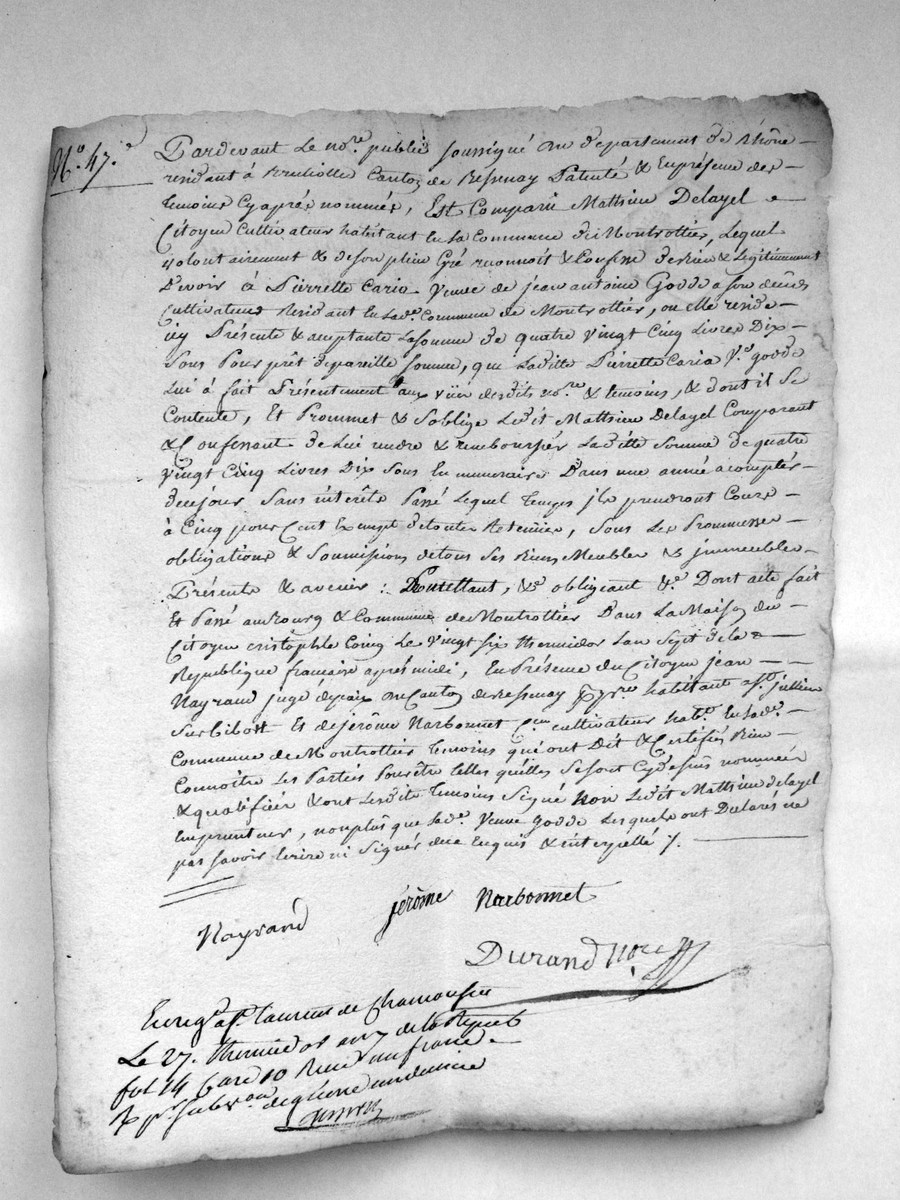 N.o 47.e
Pardevant Le no.re public soussigné au departement du Rhône
residant à Brulliolle Canton de Bessenay Patenté & En présence des
temoins Cy après nommés, Est Comparu Mathieu Delayel
Citoyen Cultivateur habitant en La Commune de Montrottier, Lequel
volontairement & de son plein Gré reconnoit & Confesse devoir & Legitimement
Devoir à Pierrette Caria Veuve de jean antoine Godde a son décès
Cultivateur Residant en Lad.e Commune de Montrottier, ou elle reside
icy Présente & acceptante La somme de quatre vingt Cinq Livres Dix
Sous Pour prêt de pareille somme, que Laditte Pierrette Caria V.e godde
Lui à fait Présentement aux vüe desdits no.re & temoins, & dont il se
Contente, Et Prommet & s'oblige Ledit Mathieu Delayel Comparant
& Confessant de Lui rendre & rembourser Laditte Somme de quatre
vingt Cinq Livres Dix Sous En numeraire Dans une année a compter
de ce jour Sans intérêts Passé Lequel temps ils prendront Cours
à Cinq pour Cent Exempt de toutes Retenues, Sous Les Prommesses
obligations & Soumissions de tous Ses Biens Meubles & jmmeubles
Présents & avenir : & obligeant &.a Dont acte fait
Et Passé au Bourg & Commune de Montrottier Dans La Maison du
Citoyen cristophle Coinq Le vingt six thermidor Lan Sept de la
Republique francaise après midi, En Présence du Citoyen jean
Nayrand juge de paix du Canton de Bessenay habitant a S.t jullien
Sur Bibost Et de jerôme Narbonnet C.en cultivateur hab.t En Lad.e
Commune de Montrottier temoins qui ont Dit & Certifiés Bien
Connoitre Les Parties Pour être telles qu'elles Se sont Cy dessus nommées
& qualifiées & ont Lesdits temoins Signé Non Ledit Mathieu delayel
Emprunteur, non plus que Lad.e Veuve Godde Lesquels ont Déclarés ne
pas savoir Ecrire ni Signer de ce Enquis & interpellé /.
Nayrand jérôme Narbonnet
Durand No.re
Enreg.é a S.t Laurent de Chamousset
Le 27. thermidor an 7 de la Repub
fol 14 Case 10 Recu un franc